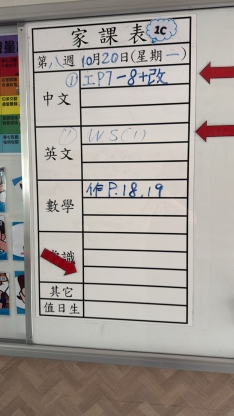 家課表 1C
第八週 10月20日(星期一)
中文 ① 工P7-8+改
英文 (1) WS(1)
數學 作P.18,19
識
其它
值日生